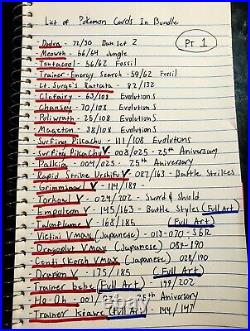 List of Pokemon Cards In Bundle
Pt 1
Dodrio - 72/130 Base Set 2
Meowth - 56/64 Jungle
Tentacool - 56/62 Fossil
Trainer - Energy Search - 59/62 Fossil
Lt. Surge's Rattata - 82/132
Clefairy - 63/108 Evolutions
Chansey - 70/108 Evolutions
Poliwrath - 25/108 Evolutions
Magneton - 38/108 Evolutions
Surfing Pikachu - 111/108 Evolutions
Surfing Pikachu V - 008/025 - 25th Aniversary
Palkia - 004/025 - 25th Aniversary
Rapid Strike Urshifu V - 087/163 - Battle Strikes
Grimmsnarl V - 114/189
Torkoal V - 024/202 - Sword & Shield
Empoleon V - 145/163 - Battle Styles (Full Art)
Toxtricity V (Full Art)
Victini VMax (Japanese) - 013-070 - S5R
Dragapult VMax (Japanese) - 089-190
Centiskorch VMax (Japanese) - 028/190
Drapion V - 175/185 (Full Art)
Trainer bebe (Full Art) 199/202
Ho-Oh - 001/ 25th Aniversary
Trainer Kiawe (Full Art) - 144/147